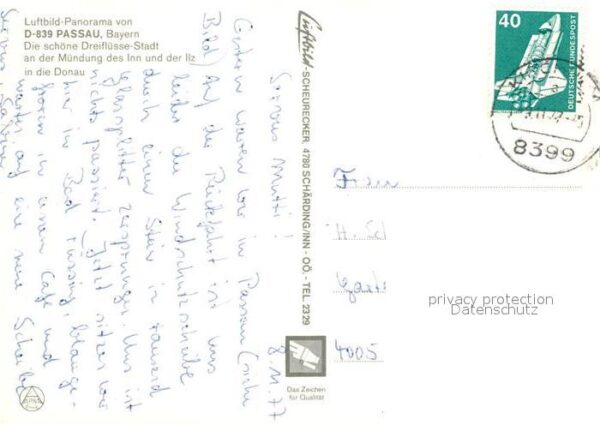 Luftbild-Panorama von
D-839 PASSAU, Bayern
Die schöne Dreiflüsse-Stadt
an der Mündung des Inn und der Ilz
in die Donau
8.11.77
Servus Mutti!
Gestern waren wir in Passau (siehe
Bild) Auf der Rückfahrt ist uns
leider die Windschutzscheibe
durch einen Stein in tausend
Glassplitter zersprungen. Uns ist
nichts passiert. Jetzt sitzen wir
hier in Bad Füssing,
in einem Café und
warten auf eine neue Scheibe
Servus, Sabine
Luftbild-SCHEURECKER, 4780 SCHÄRDING/INN - OÖ. - TEL. 2329
40
DEUTSCHE BUNDESPOST
a
8399
Frau
H.
4005
privacy protection
Datenschutz
Das Zeichen
für Qualität